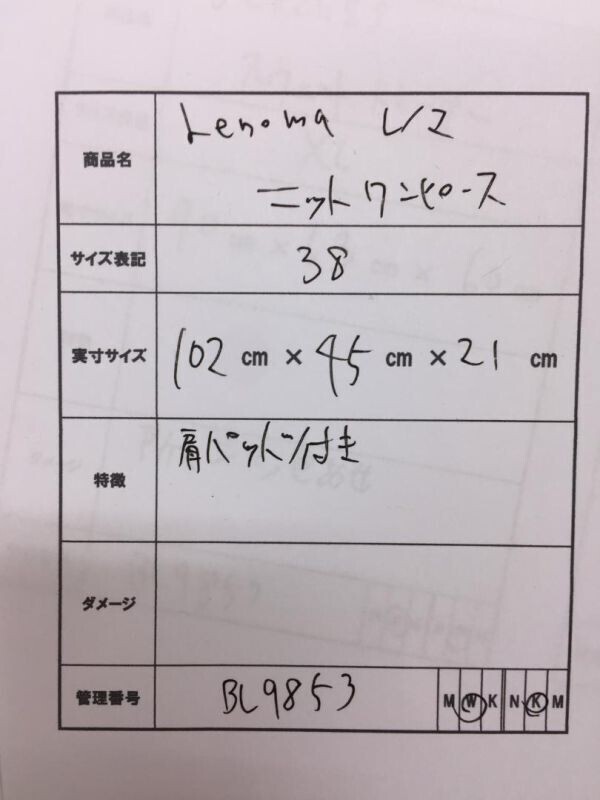 商品名
Lenoma レノマ
ニットワンピース
サイズ表記
38
実寸サイズ
102 cm × 45 cm × 21 cm
特徴
肩パット付き
ダメージ
管理番号
BL9853
M W K N K M